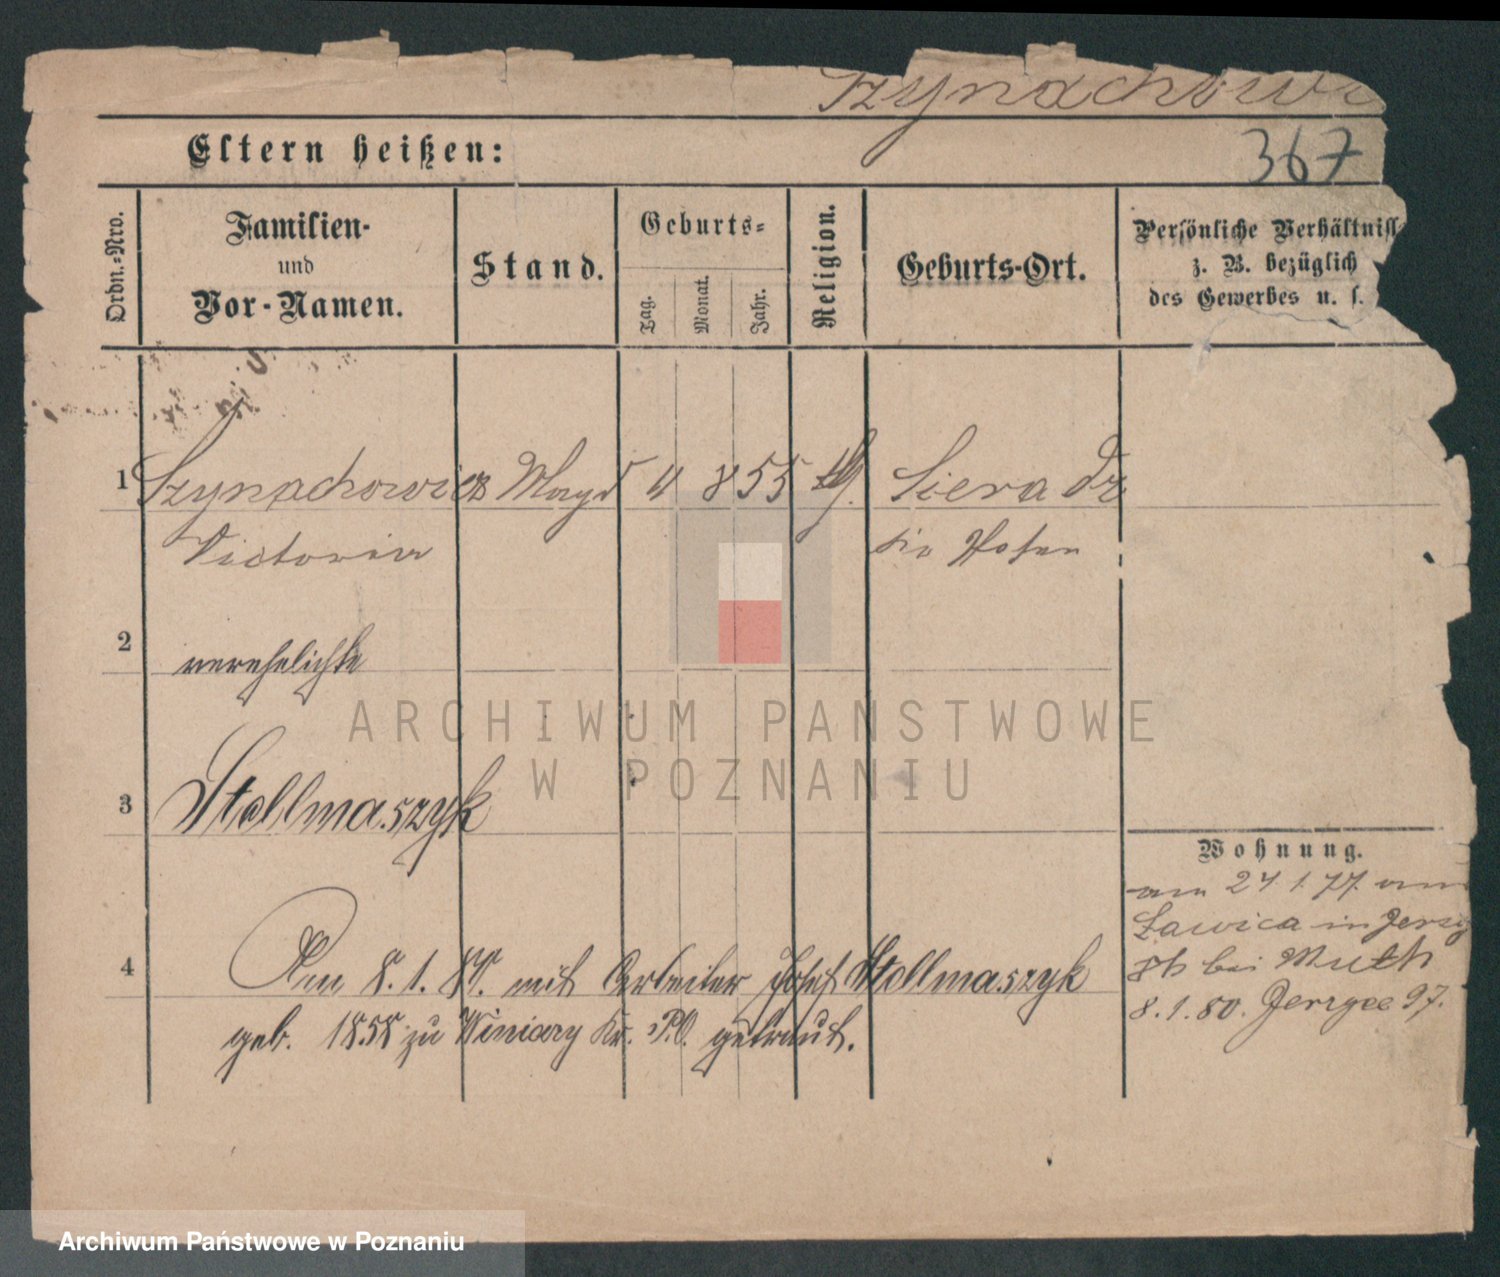 Szynachowi
Eltern heißen:
367
Ordn.-Nro.
Familien-
und
Vor-Namen.
Stand.
Geburts-
Tag.
Monat.
Jahr.
Religion.
Geburts-Ort.
Persönliche Verhältniss
z. B. bezüglich
des Gewerbes u. s.
1 Szynachowicz Magd 4 8 55 Sieradz
Victoria
2 verehelichte
3 Stellmaszyk
Wohnung.
am 24 1. 77. 
Ławica in Jerzy
bei Muth
8. 1. 80. 97.
4 Am 8. 1. mit Arbeiter Josef Stellmaszyk
geb. 1858 zu Winiary Kr. P.O. getraut.
ARCHIWUM PAŃSTWOWE
W POZNANIU
Archiwum Państwowe w Poznaniu